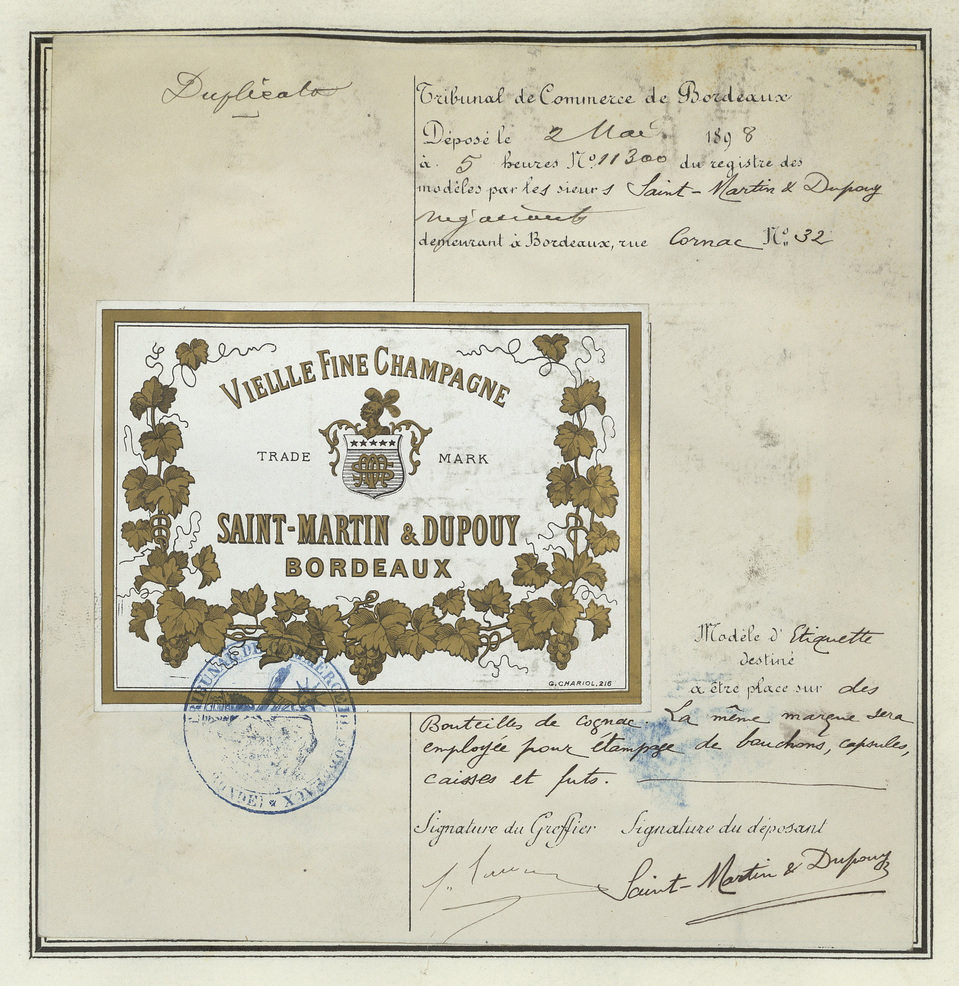 Duplicata
Tribunal de Commerce de Bordeaux
Déposé le 2 Mai 1898
à 5 heures Nº 11300 du registre des
modèles par les sieurs Saint-Martin & Dupouy
négociants
demeurant à Bordeaux, rue Cornac Nº 32
VIELLLE FINE CHAMPAGNE
TRADE MARK
SAINT-MARTIN & DUPOUY
BORDEAUX
G. CHARIOL, 216
Modèle d'Etiquette
destiné
a être place sur des
Bouteilles de cognac La même marque sera
employée pour étampage de bouchons, capsules,
caisses et futs.
TRIBUNAL DE COMMERCE DE BORDEAUX
Signature du Greffier Signature du déposant
Saint-Martin & Dupouy